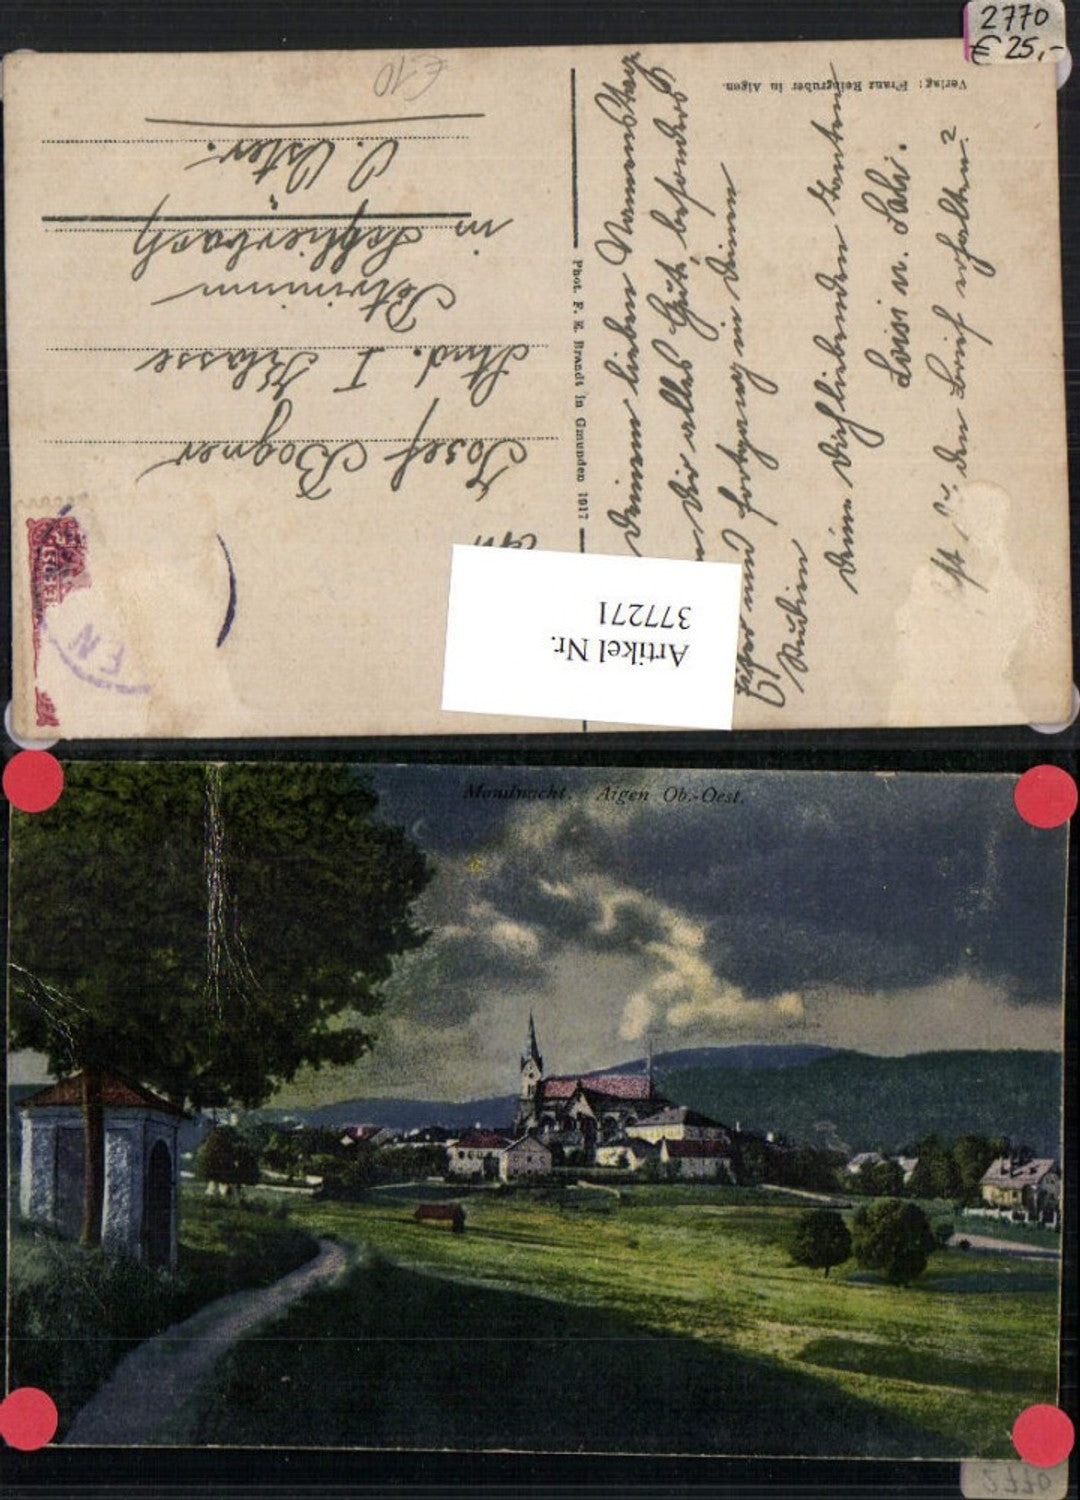 2770
€ 25,-
Verlag: Franz Reingruber in Aigen.
Phot. F. E. Brandt in Gmunden 1917
€ 10
An
Josef Bogner
Stud. I Klasse
Petrinum
in Schlierbach
O. Öster.
Deinem lieben Namenstag
Dir alles Gute, besonders
und Fortgang in Deinen
Studien
Deine Dich liebenden Tanten
Louisi u. Sali.
den Brief erhalten?
Artikel Nr.
377271
EN
Mondnacht. Aigen Ob.-Oest.
2770